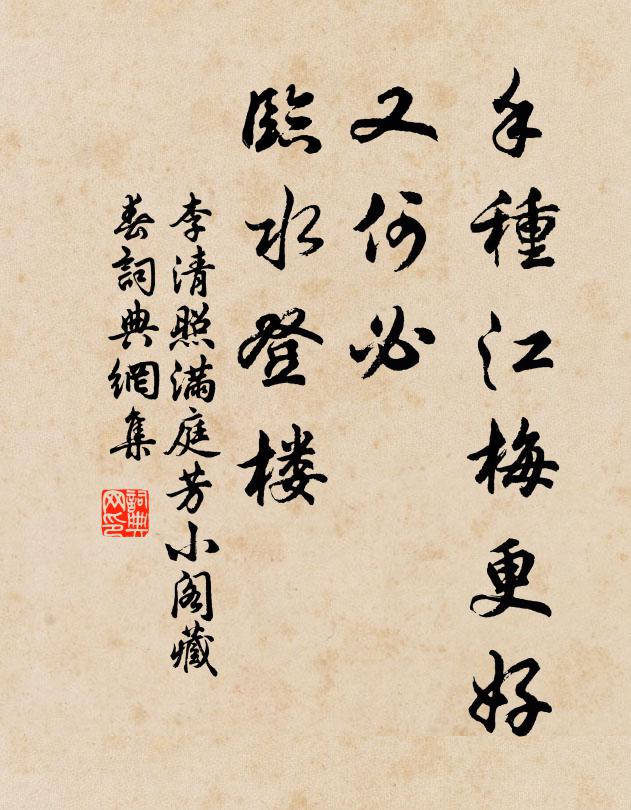 手種江梅更好
又何必
臨水登楼
李清照滿庭芳小阁藏
春詞典網集
詞典
网印